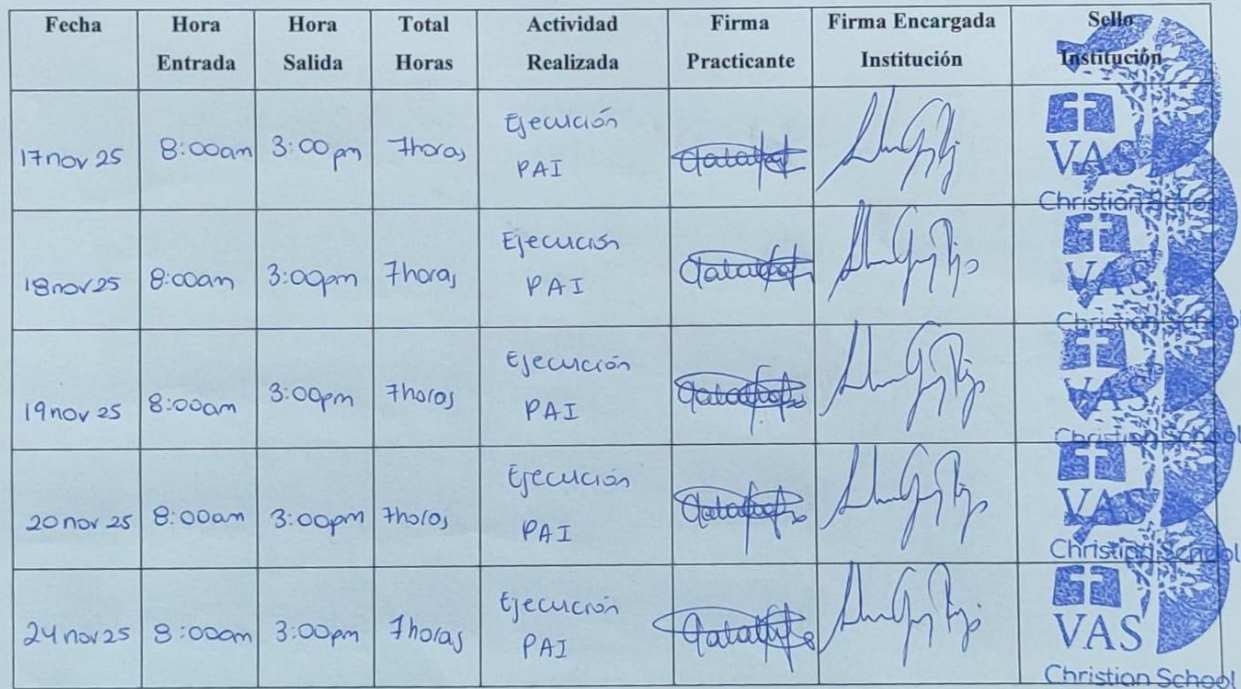 Fecha Hora Entrada Hora Salida Total Horas Actividad Realizada Firma Practicante Firma Encargada Institución Sello Institución
17 nov 25 8:00am 3:00pm 7horas Ejecución PAI
VAS
Christian School
18 nov 25 8:00am 3:00pm 7horas Ejecución PAI
VAS
Christian School
19 nov 25 8:00am 3:00pm 7horas Ejecución PAI
VAS
Christian School
20 nov 25 8:00am 3:00pm 7horas Ejecución PAI
VAS
Christian School
24 nov 25 8:00am 3:00pm 7horas Ejecución PAI
VAS
Christian School